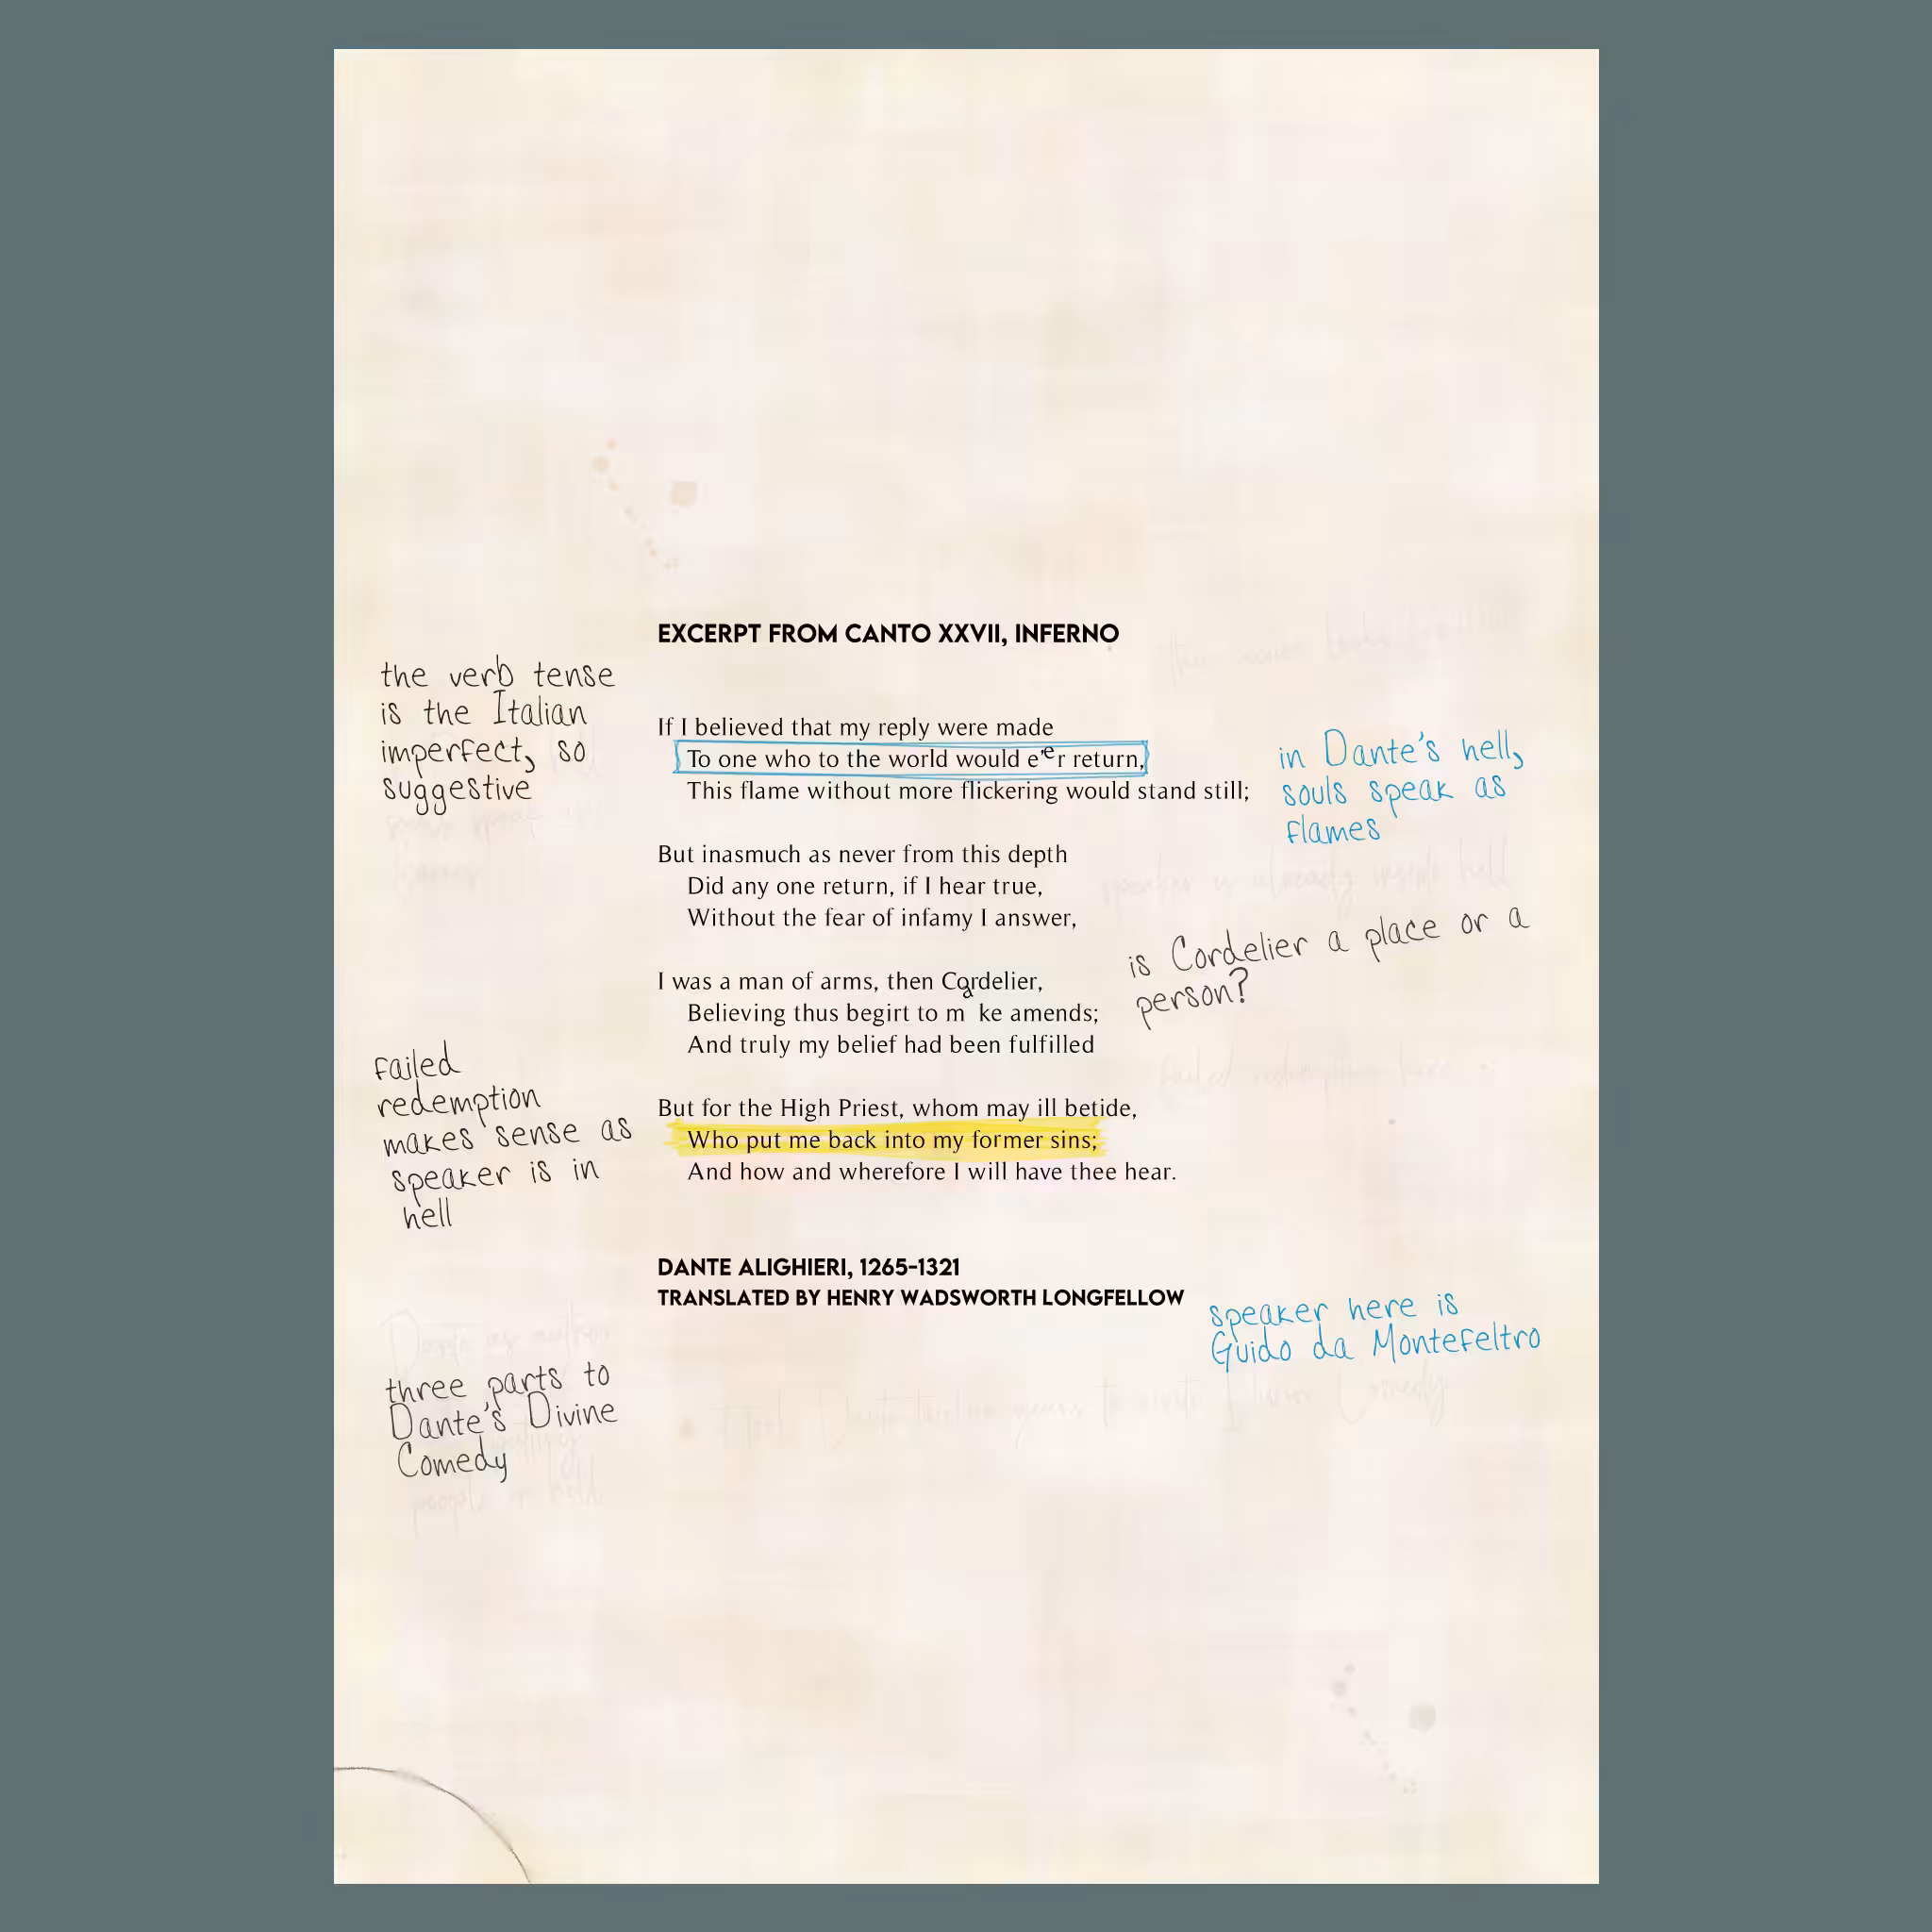 EXCERPT FROM CANTO XXVII, INFERNO
the verb tense
is the Italian
imperfect, so
suggestive
If I believed that my reply were made
To one who to the world would e'er return,
This flame without more flickering would stand still;
in Dante's hell,
souls speak as
flames
But inasmuch as never from this depth
Did any one return, if I hear true,
Without the fear of infamy I answer,
speaker is already inside hell
I was a man of arms, then Cordelier,
Believing thus begirt to make amends;
And truly my belief had been fulfilled
is Cordelier a place or a
person?
failed
redemption
makes sense as
speaker is in
hell
But for the High Priest, whom may ill betide,
Who put me back into my former sins;
And how and wherefore I will have thee hear.
DANTE ALIGHIERI, 1265-1321
TRANSLATED BY HENRY WADSWORTH LONGFELLOW
speaker here is
Guido da Montefeltro
three parts to
Dante's Divine
Comedy